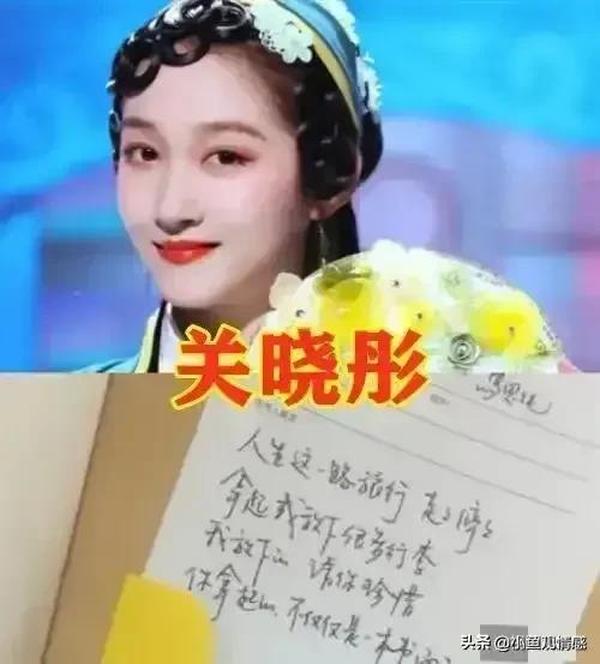 关晓彤
人生这一路旅行 走走停停
拿起或放下很多行李
我放下的 请你珍惜
你拿起的 不仅仅是一本书
头条 @小鱼儿情感